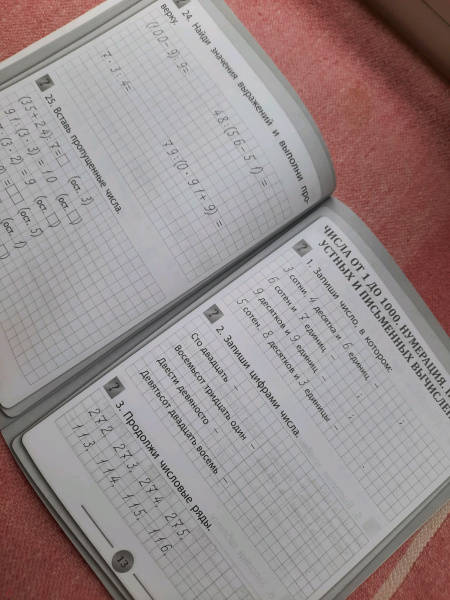 24. Найди значения выражений и выполни про-
верку.
(100-9):9=
48:(56-51)=
7·3:4=
79:(0·91+9)=
25. Вставь пропущенные числа.
(35+24):7=□ (ост. 3)
91:(3·3)=10 (ост. □)
(3·2)=9 (ост. □)
=□ (ост. 5)
(ост. 1)
ЧИСЛА ОТ 1 ДО 1000. НУМЕРАЦИЯ.
УСТНЫХ И ПИСЬМЕННЫХ ВЫЧИСЛЕН
1. Запиши число, в котором:
3 сотни, 4 десятка и 6 единиц – ;
6 сотен и 7 единиц – ;
9 десятков и 9 единиц – ;
5 сотен, 8 десятков и 3 единицы – .
2. Запиши цифрами числа.
Сто двадцать –
Восемьсот тридцать один –
Двести девяносто –
Девятьсот двадцать восемь –
3. Продолжи числовые ряды.
272, 273, 274, 275,
113, 114, 115, 116,
13